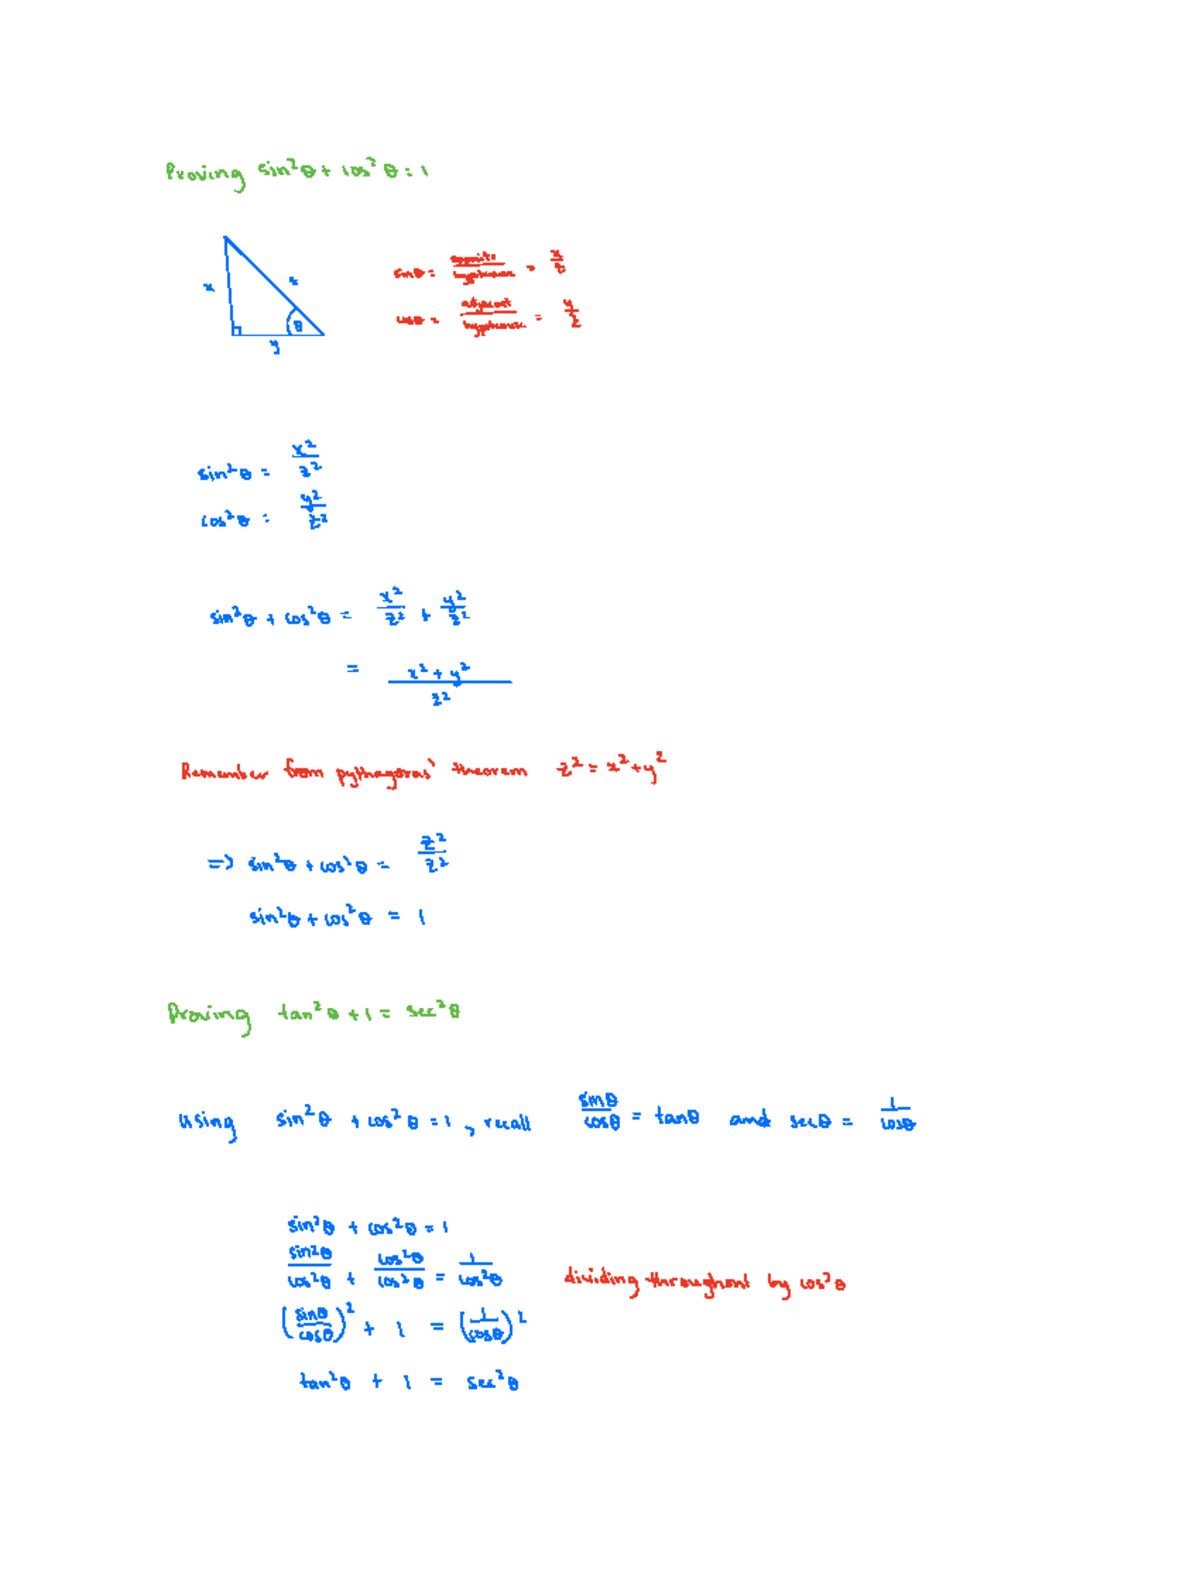 Proving sin²θ + cos²θ = 1
x
z
θ
y
sinθ = opposite/hypotenuse = x/z
cosθ = adjacent/hypotenuse = y/z
sin²θ = x²/z²
cos²θ = y²/z²
sin²θ + cos²θ = x²/z² + y²/z²
= (x² + y²)/z²
Remember from pythagoras' theorem z² = x² + y²
=> sin²θ + cos²θ = z²/z²
sin²θ + cos²θ = 1
Proving tan²θ + 1 = sec²θ
Using sin²θ + cos²θ = 1, recall sinθ/cosθ = tanθ and secθ = 1/cosθ
sin²θ + cos²θ = 1
sin²θ/cos²θ + cos²θ/cos²θ = 1/cos²θ dividing throughout by cos²θ
(sinθ/cosθ)² + 1 = (1/cosθ)²
tan²θ + 1 = sec²θ